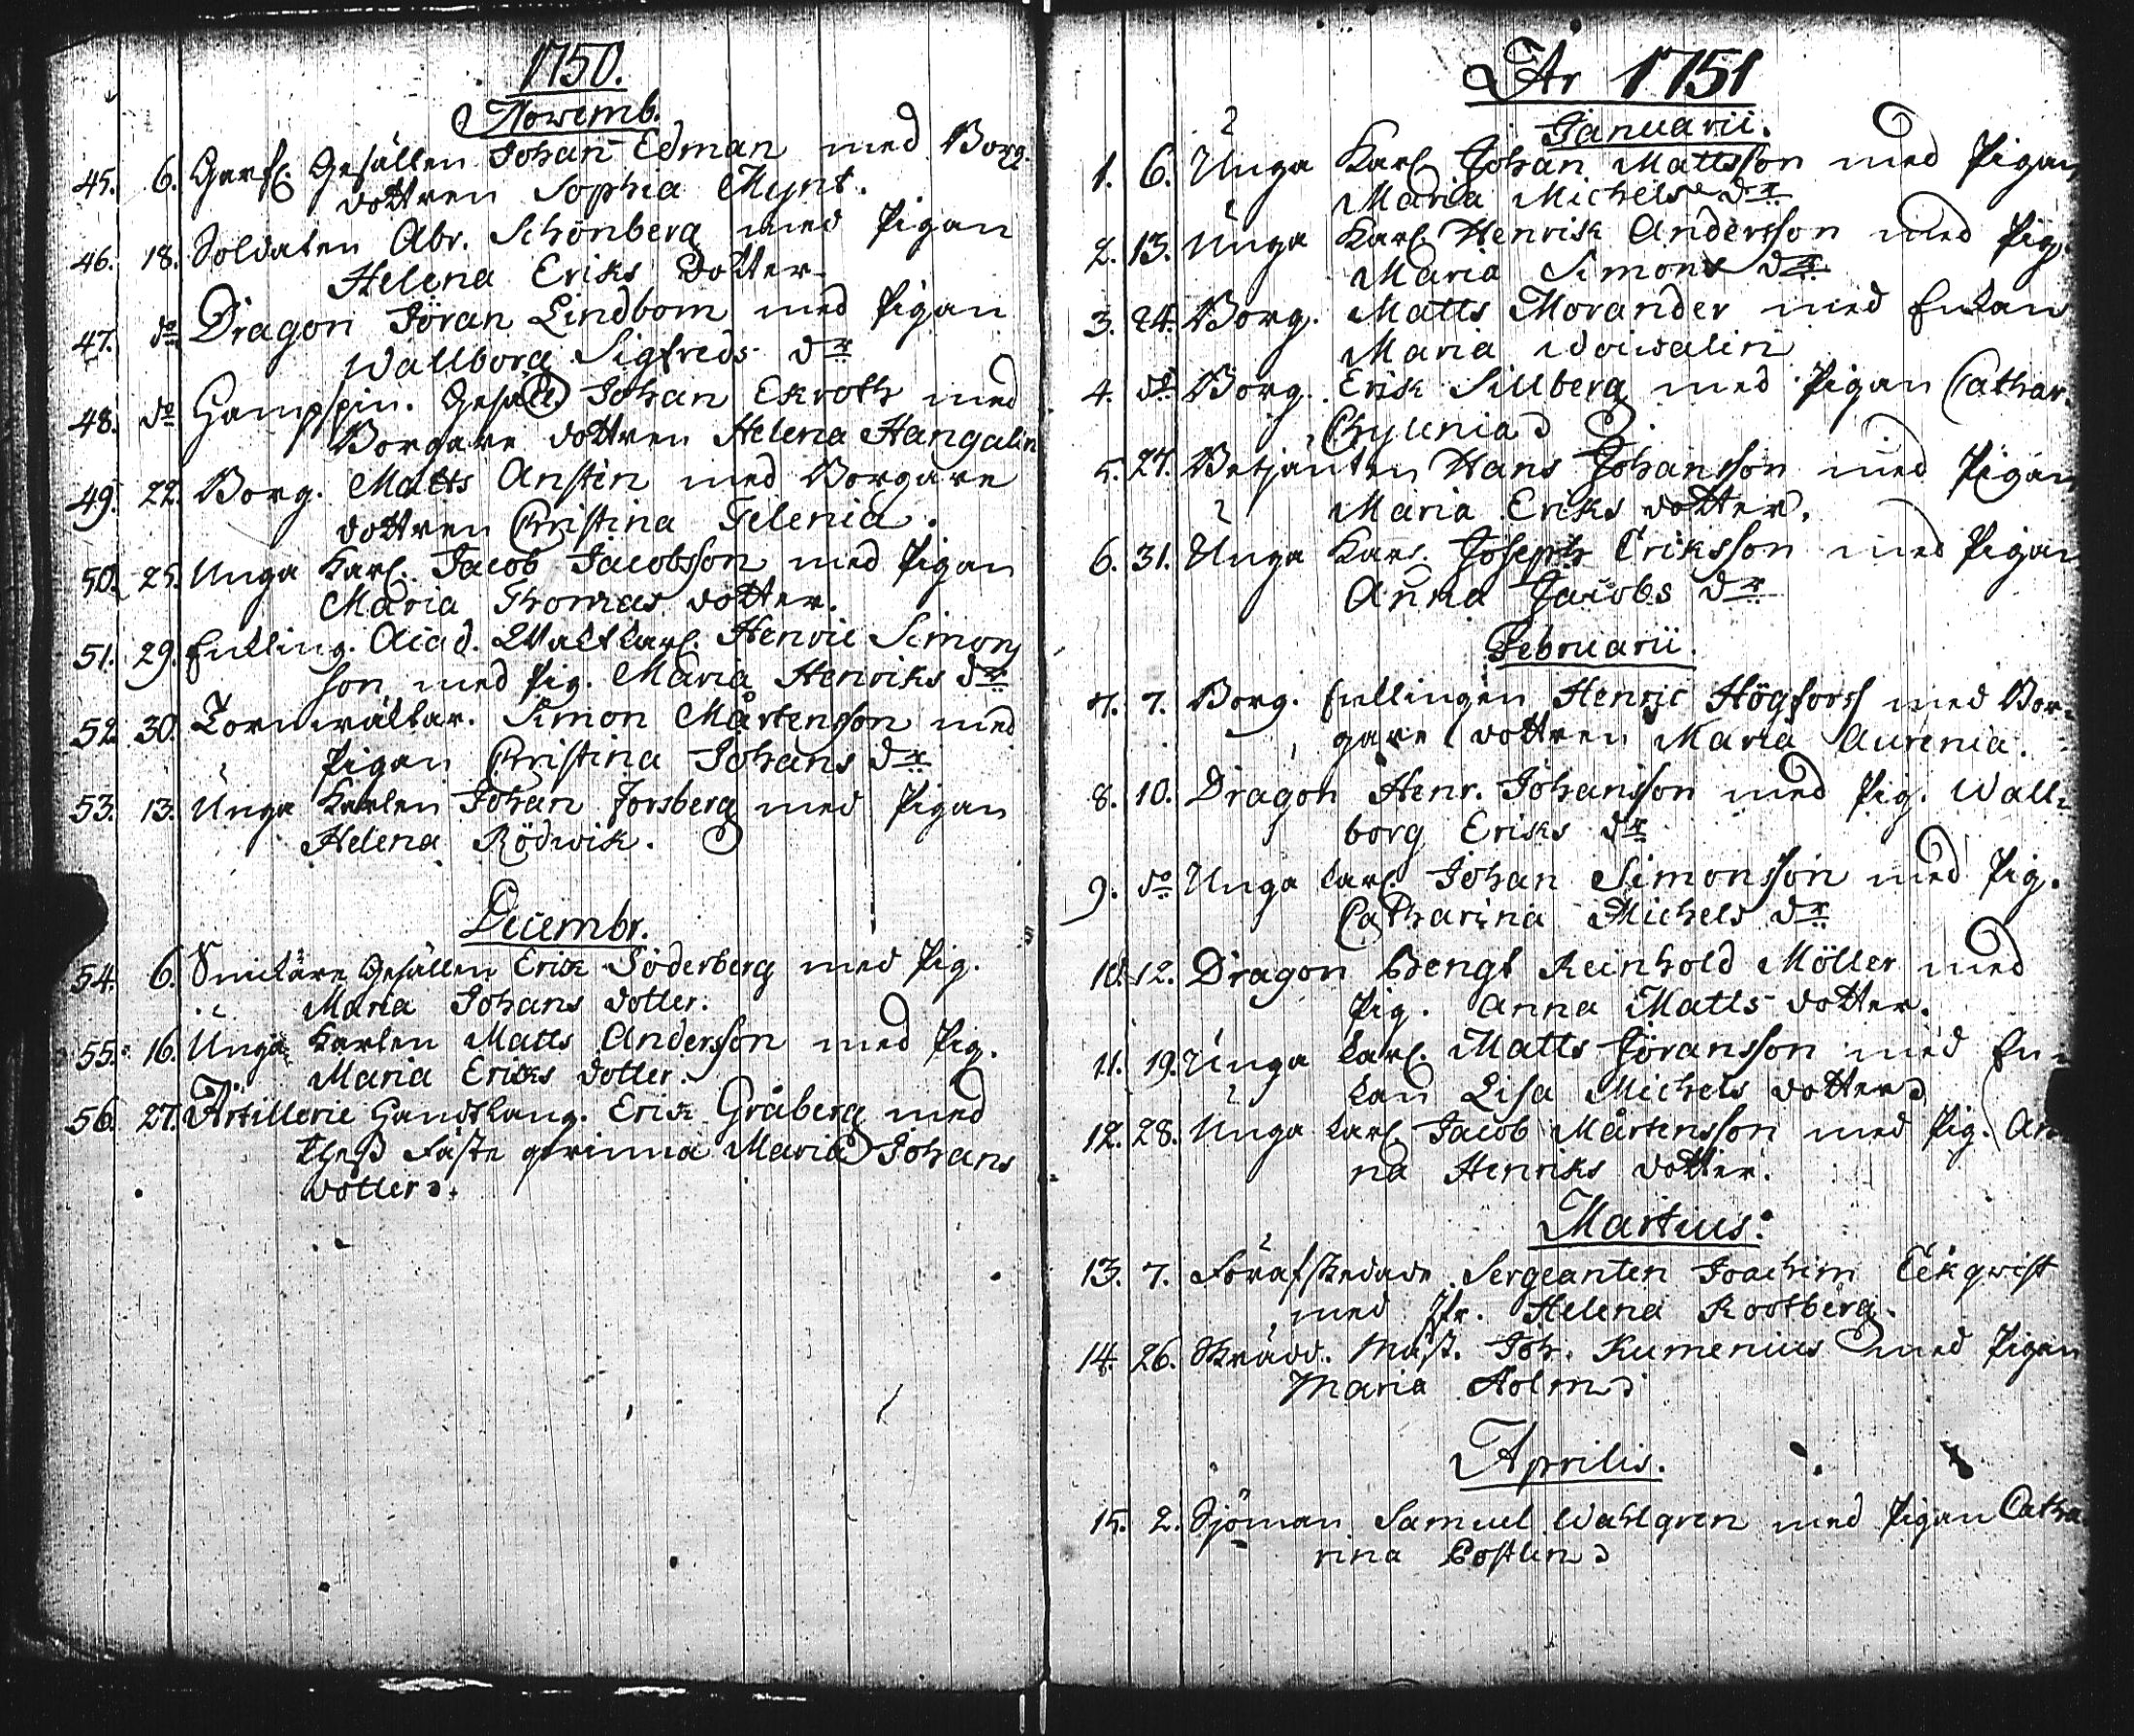 1750.
Novemb.
45. 6. Garf. Gesällen Johan Edman med Borg.
dottren Sophia Mynt.
46. 18. Soldaten Abr. Schönberg med Pigan
Helena Eriks dotter
47. do Dragon Jöran Lindbom med Pigan
Wallborg Sigfreds dr
48. do Hampspin. Gesäll. Johan Ekroth med
Borgare dottren Helena Hangalin
49. 22. Borg. Matts Anstin med Borgare
dottren Christina Telenia.
50. 25. Unga Karl. Jacob Jacobsson med Pigan
Maria Thomas dotter.
51. 29. Enkling. Acad. Waktkarl. Henric Simons
son, med Pig. Maria Henriks dr
52. 30. Tornwältar. Simon Mårtensson med
Pigan Christina Johans dr
53. 13. Unga Karlen Johan Forsberg med Pigan
Helena Rödwik.
Decembr.
54. 6. Snickare Gesällen Erik Söderberg med Pig.
Maria Johans dotter.
55. 16. Unga Karlen Matts Andersson med Pig.
Maria Ericks dotter.
56. 27. Artillerie Handtlang. Erik Gråberg med
thess Fäste qwinna Maria Johans
dotter.
År 1751
Januarii.
1. 6. Unga Karl. Johan Mattsson med Pigan
Maria Michels dr
2. 13. Unga Karl. Henrik Andersson med Pig.
Maria Simons dr
3. 24. Borg. Matts Morander med Enkan
Maria Woiwalin
4. do Borg. Erik Sillberg med Pigan Cathar.
Chylenia
5. 27. Betjänten Hans Johansson med Pigan
Maria Eriks dotter.
6. 31. Unga Karl. Joseph Eriksson med Pigan
Anna Jacobs dr
Februarii.
7. 7. Borg. Enklingen Henric Högforss med Bor-
gare dottren Maria Aurenia.
8. 10. Dragon Henr. Johansson med Pig. Wall-
borg Eriks dr
9. do Unga karl. Johan Simonsson med Pig.
Catharina Michels dr
10. 12. Dragon Bengt Reinhold Möller med
Pig. Anna Matts dotter.
11. 19. Unga karl. Matts Jöransson med En-
kan Lisa Michels dotter
12. 28. Unga karl. Jacob Mårtensson med Pig. An
na Henriks dotter.
Martius.
13. 7. Förafskedade Sergeanten Joachim Eekqwist
med Jfr. Helena Rootberg.
14. 26. Skrädd. Mäst. Joh. Rumenius med Pigan
Maria Holm
Aprilis.
15. 2. Sjöman Samuel Wahlgren med Pigan Catha
rina Costlin